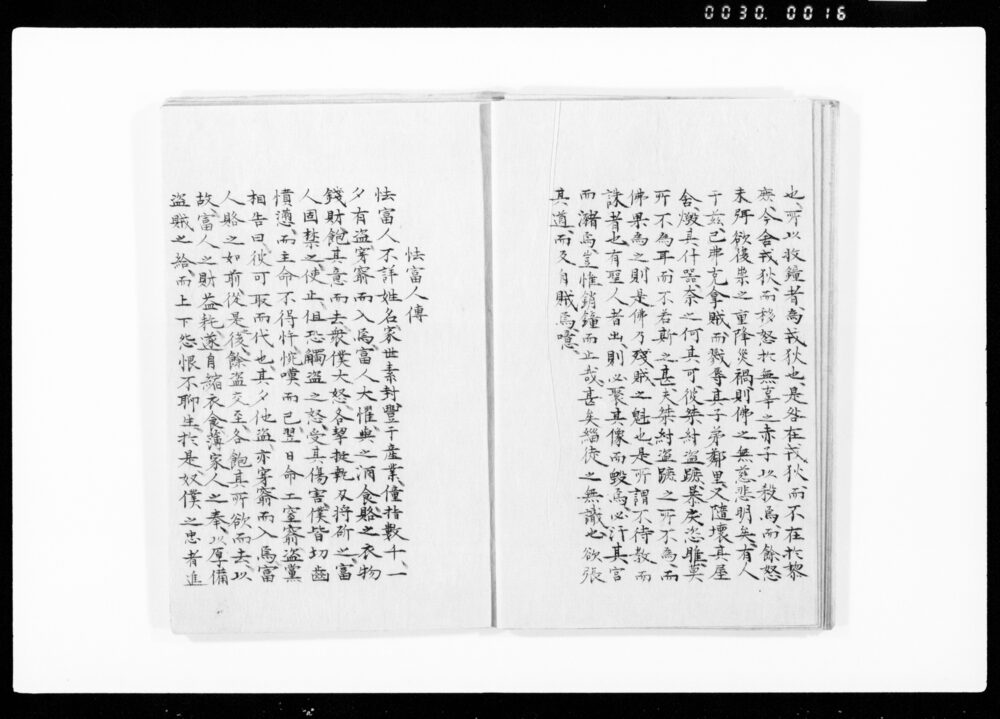 0030. 0016
也、所以收鐘者、為戎狄也、是咎在戎狄而不在於黎
庶、今舍戎狄而移怒於無辜之赤子以殺焉、而餘怒
未弭、欲後祟之重降災禍、則佛之無慈悲明矣、有人
于玆、已弗克拿賊、而戮辱其子弟鄰里、又隨壞其屋
舍、燬其什器、奈之何其可、彼桀紂盜蹠、暴戾恣睢、莫
所不為耳、而不若斯之甚、夫桀紂盜蹠之所不為、而
佛果為之、則是佛乃殘賊之魁也、是所謂不待教而
誅者也、有聖人者出、則必聚其像而毀焉、必汙其宮
而瀦焉、豈惟銷鐘而止哉、甚矣緇徒之無識也、欲張
其道、而反自賊焉、噫
怯富人傳
怯富人不詳姓名、家世素封、豐于產業、僮指數千、一
夕有盜穿窬而入焉、富人大懼、與之酒食、賂之衣物
錢財、飽其意而去、衆僕大怒、各挈梃執刃將斫之、富
人固禁之使止、但恐觸盜之怒、受其傷害、僕皆切齒
憤懣、而主命不得忤、惋嘆而已、翌日命工窒窬、盜黨
相告曰、彼可取而代也、其夕他盜亦穿窬而入焉、富
人賂之如前、從是後餘盜交至、各飽其所欲而去、以
故富人之財益耗、遂自縮衣食、薄家人之奉、以厚備
盜賊之給、而上下怨恨不聊生、於是奴僕之忠者進